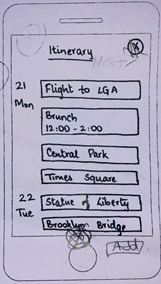 Itinerary
X
21
Mon
Flight to LGA
Brunch
12:00 - 2:00
Central Park
Times Square
22
Tue
Statue of Liberty
Brooklyn Bridge
Add